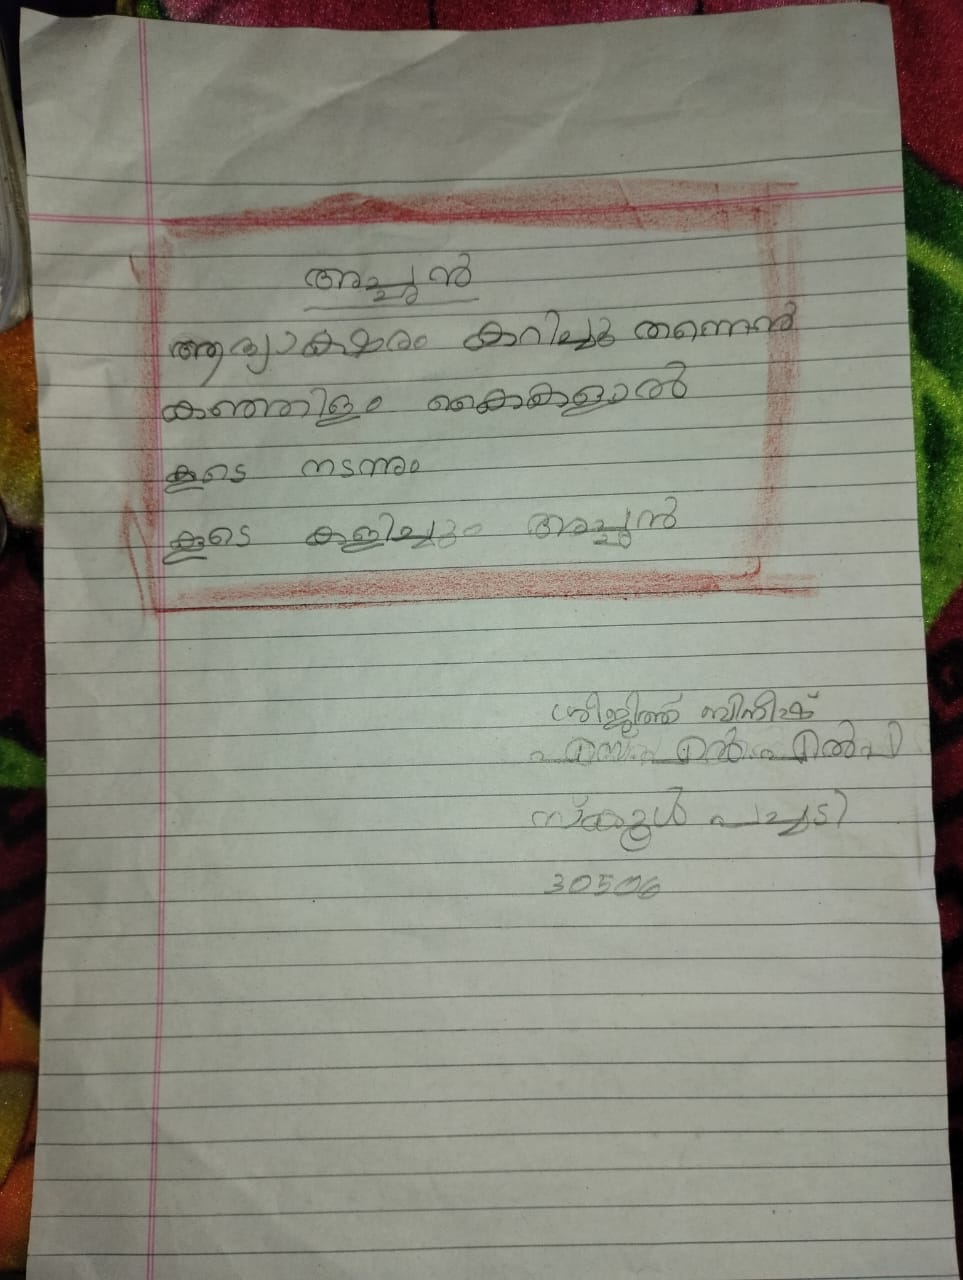 അച്ഛൻ
ആദ്യാക്ഷരം കുറിച്ചു തന്നെൻ
കുഞ്ഞിളം കൈകളാൽ
കൂടെ നടന്നും
കൂടെ കളിച്ചും അച്ഛൻ
ശ്രീജിത്ത് ബിനീഷ്
എസ് എൻ എൽ പി
സ്കൂൾ പച്ചടി
30506